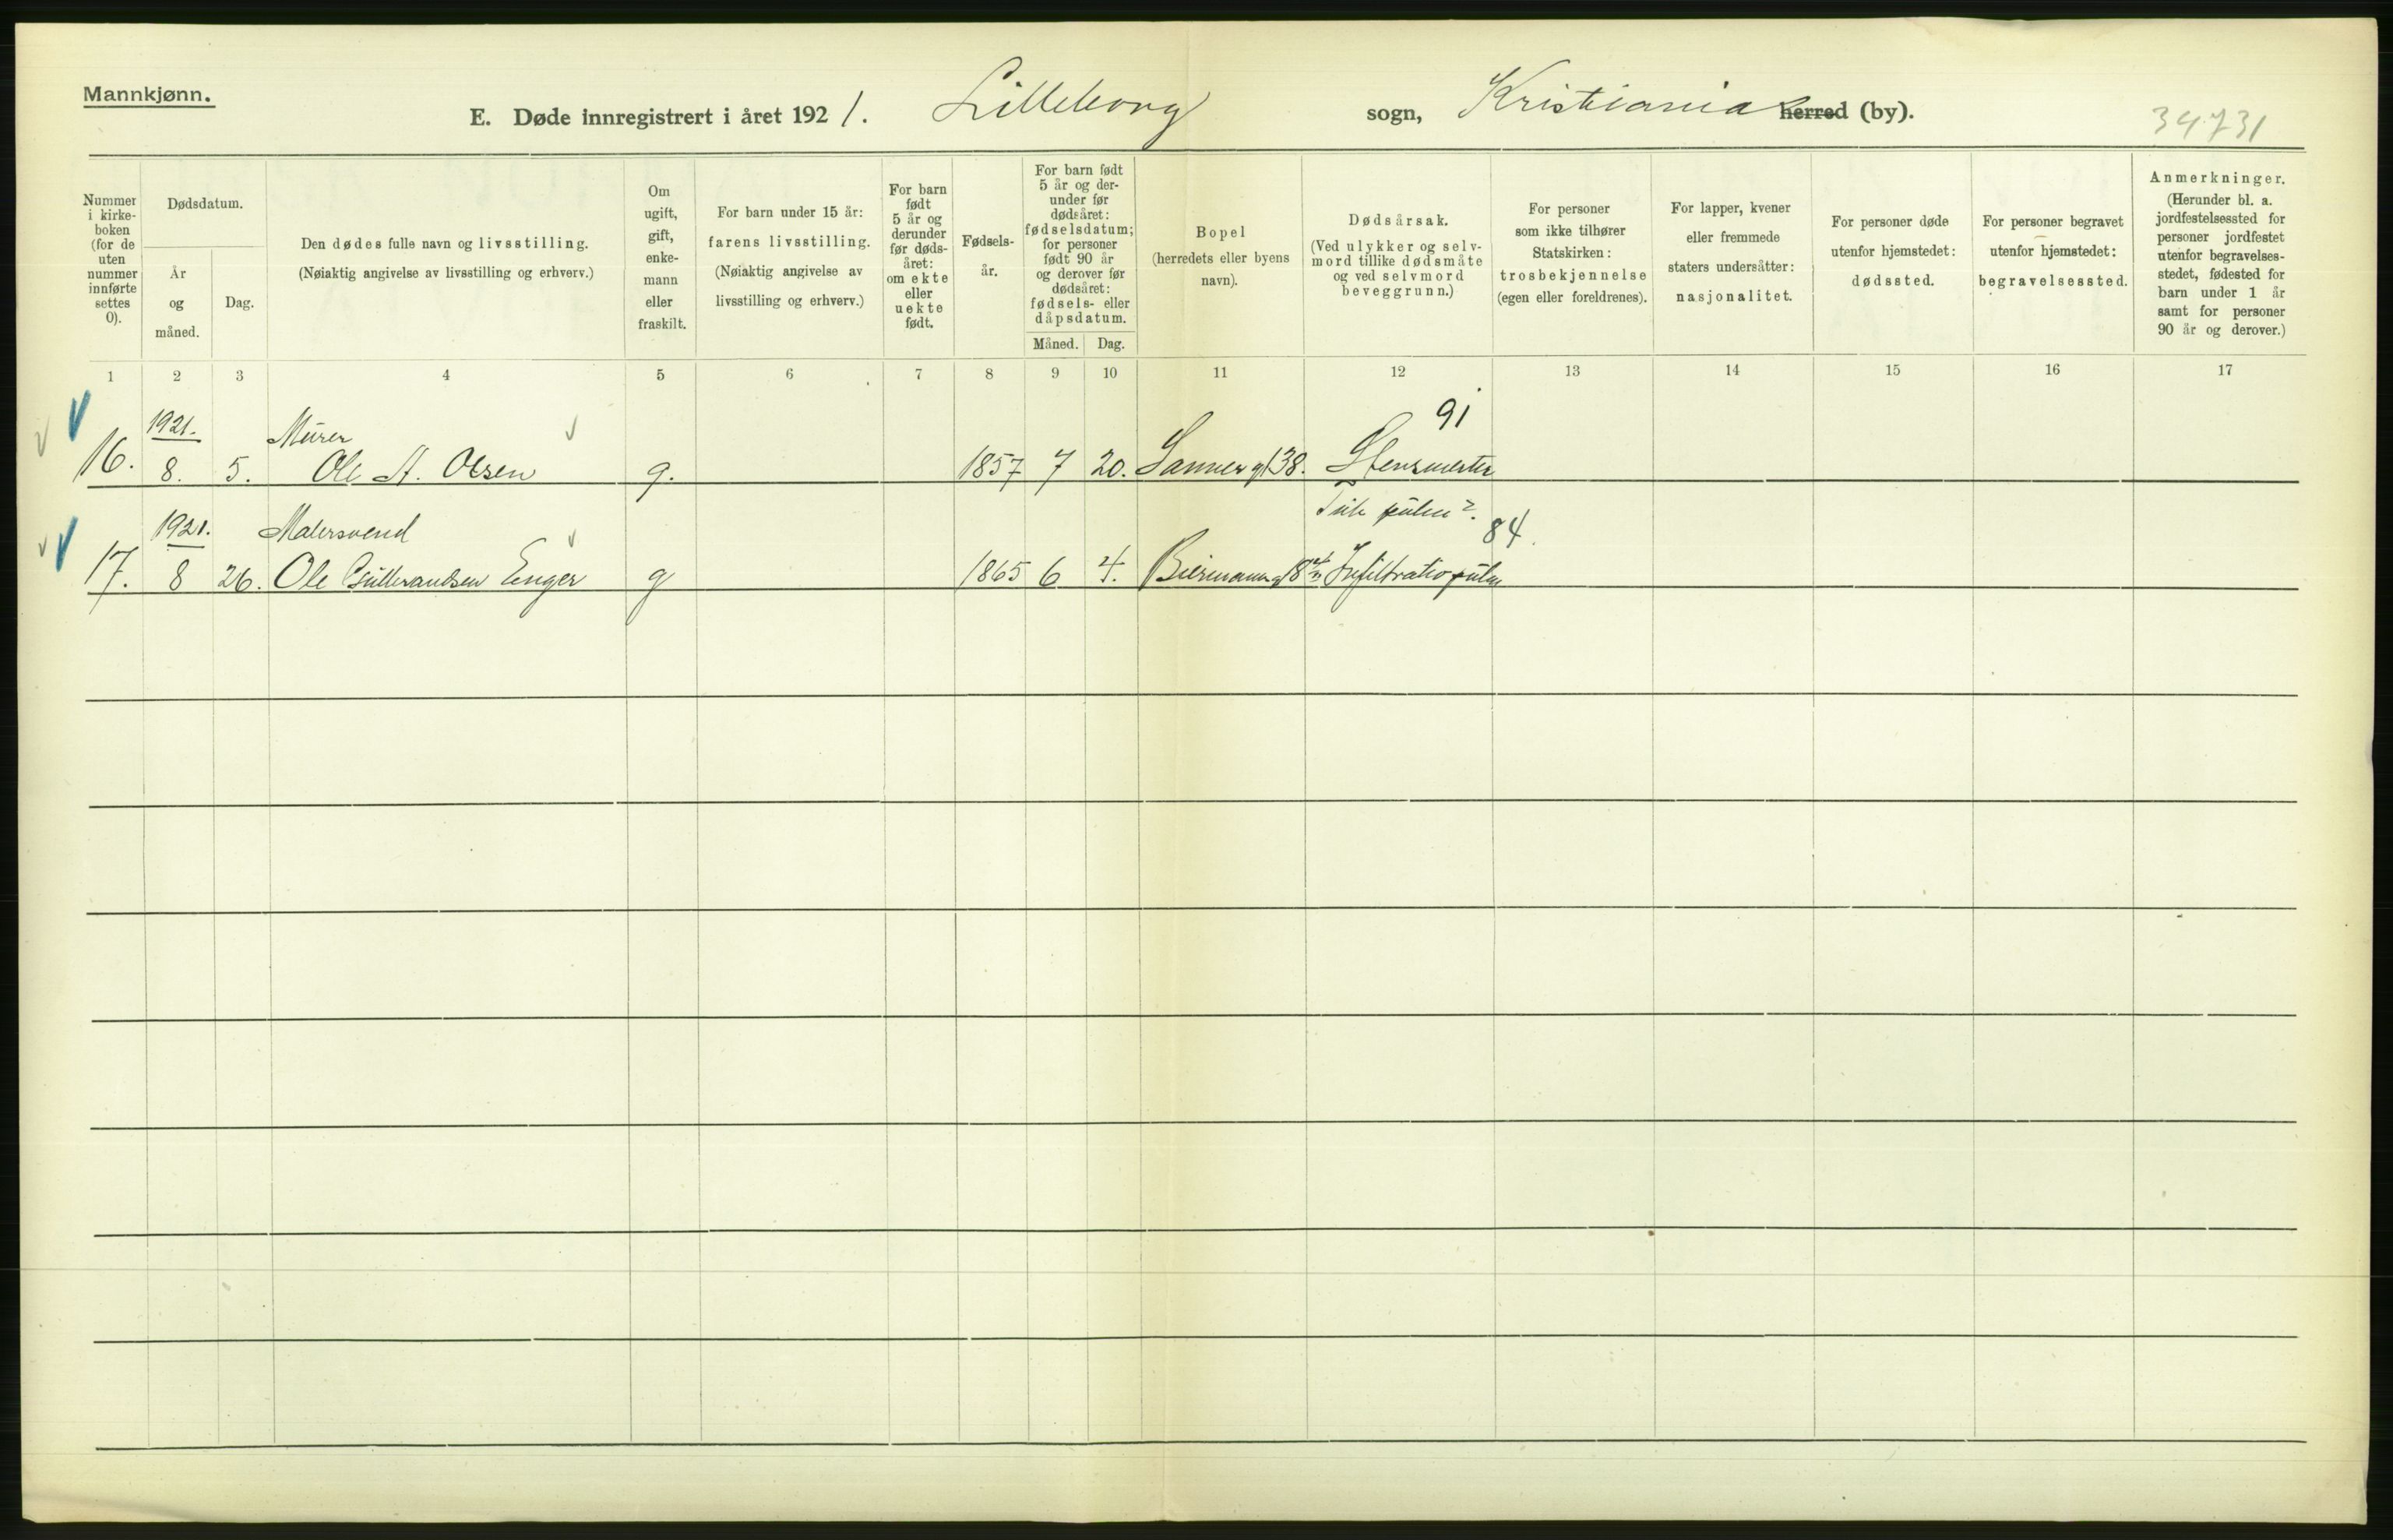 Mannkjønn.
E. Døde innregistrert i året 1921. Lilleborg sogn, Kristiania herred (by).
34731
Nummer i kirke-boken (for de uten nummer innførte settes 0).
Dødsdatum.
År og måned.
Dag.
Den dødes fulle navn og livsstilling.
(Nøiaktig angivelse av livsstilling og erhverv.)
Om ugift, gift, enke-mann eller fraskilt.
For barn under 15 år:
farens livsstilling.
(Nøiaktig angivelse av livsstilling og erhverv.)
For barn født 5 år og derunder før døds-året: om ekte eller uekte født.
Fødsels-år.
For barn født 5 år og der-under før dødsåret: fødselsdatum; for personer født 90 år og derover før dødsåret: fødsels- eller dåpsdatum.
Måned. Dag.
Bopel
(herredets eller byens navn).
Dødsårsak.
(Ved ulykker og selv-mord tillike dødsmåte og ved selvmord beveggrunn.)
For personer som ikke tilhører Statskirken: trosbekjennelse (egen eller foreldrenes).
For lapper, kvener eller fremmede staters undersåtter: nasjonalitet.
For personer døde utenfor hjemstedet: dødssted.
For personer begravet utenfor hjemstedet: begravelsessted.
Anmerkninger.
(Herunder bl. a. jordfestelsessted for personer jordfestet utenfor begravelses-stedet, fødested for barn under 1 år samt for personer 90 år og derover.)
1 2 3 4 5 6 7 8 9 10 11 12 13 14 15 16 17
1921. Murer 91
16. 8. 5. Ole A. Olsen g. 1857 7 20. Sannerg 138.
1921. Malersvend pulm?. 84.
17. 8 26. Ole Gulbrandsen Enger g 1865 6 4. Biermannsg 18 Infiltratio pulm